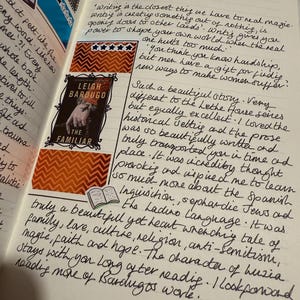 "Writing is the closest thing we have to real magic.
Writing is creating something out of nothing, is
opening doors to other lands. Writing gives you
power to shape your own world when the real
one hurts too much."
"you think you know hardship,
but men have a gift for finding
new ways to make women suffer."
LEIGH
BARDUGO
THE
FAMILIAR
Such a beautiful story. Very
different to the Ninth House series
but equally excellent. I loved the
historical setting and the prose
was so beautifully written and
truly transported you in time and
place. It was incredibly thought
provoking and inspired me to learn
so much more about the Spanish
Inquisition, Sephardic Jews and
the Ladino language. It was
truly a beautiful yet heart wrenching tale of
family, love, culture, religion, anti-semitism,
magic, faith and hope. The character of Luzia
stays with you long after reading. I look forward
reading more of Bardugo's work.